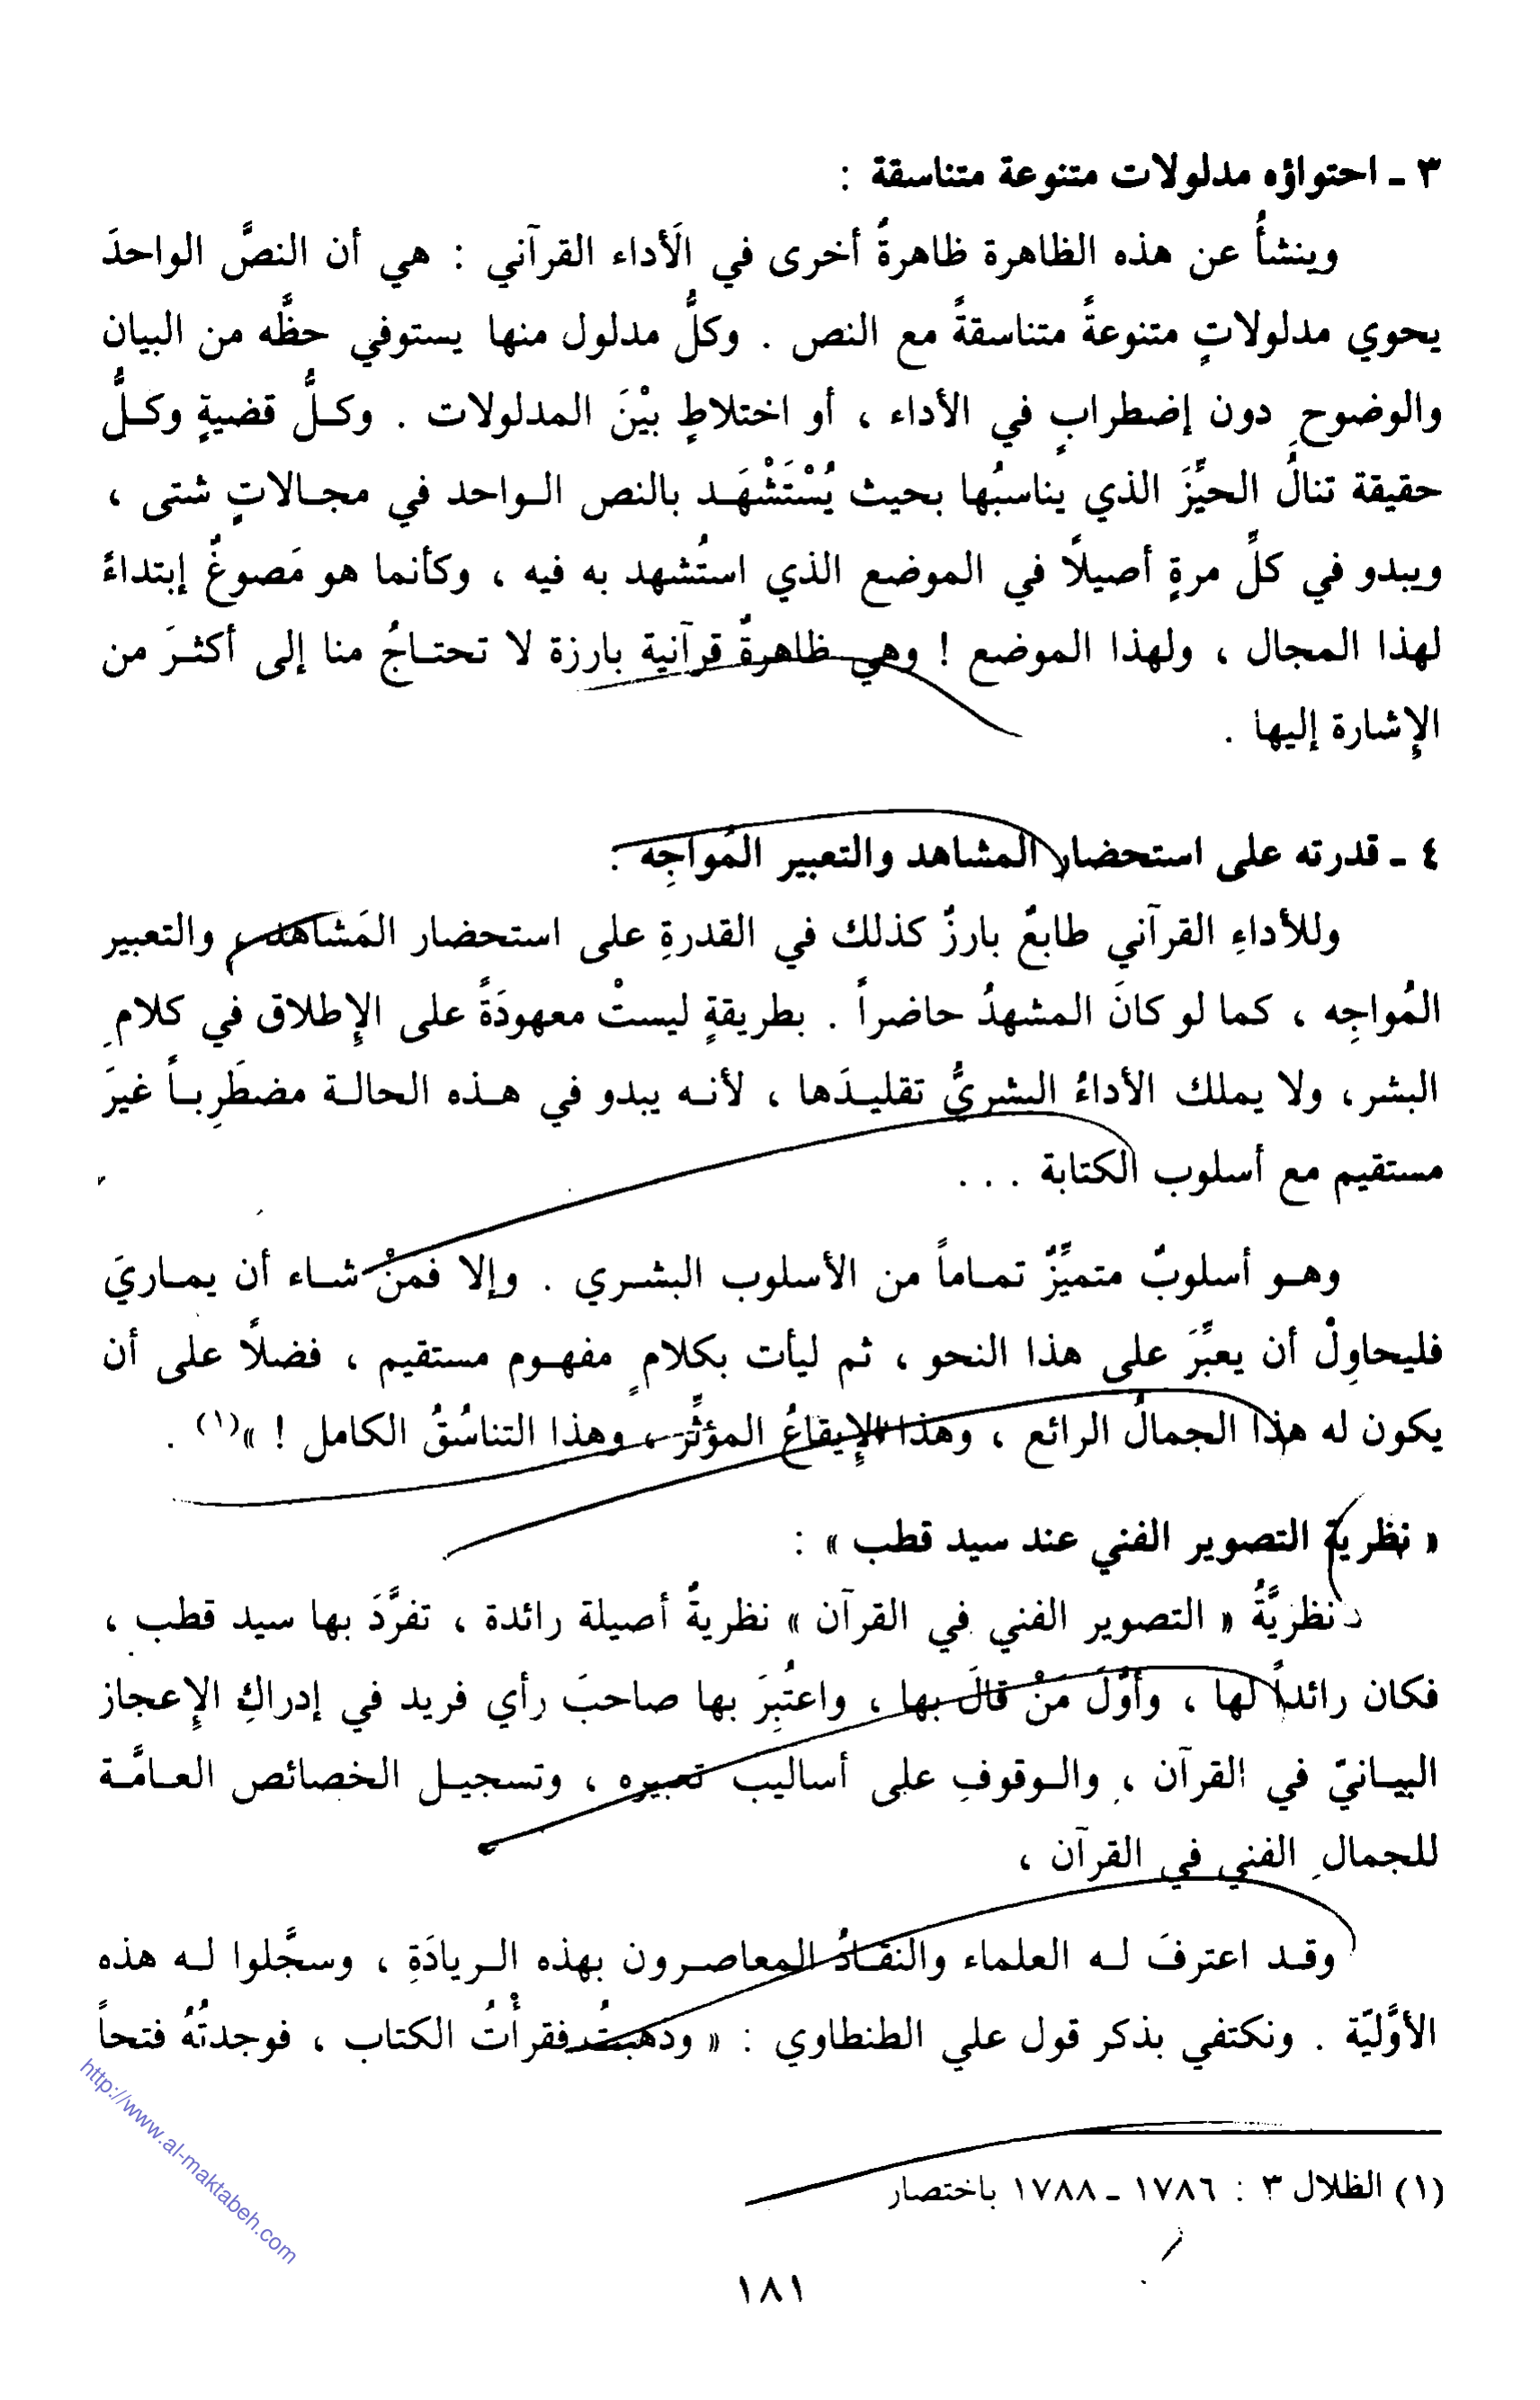 ٣ ـ احتواؤه مدلولات متنوعة متناسقة :
وينشأُ عن هذه الظاهرة ظاهرةٌ أخرى في الَأداء القرآني : هي أن النصَّ الواحدَ
يحوي مدلولاتٍ متنوعةً متناسقةً مع النص . وكلُّ مدلول منها يستوفي حظَّه من البيان
والوضوحِ دون إضطرابٍ في الأداء ، أو اختلاطٍ بيْنَ المدلولات . وكلُّ قضيةٍ وكلُّ
حقيقة تنالُ الحيِّزَ الذي يناسبُها بحيث يُسْتَشْهَد بالنص الواحد في مجالاتٍ شتى ،
ويبدو في كلِّ مرةٍ أصيلًا في الموضع الذي استُشهد به فيه ، وكأنما هو مَصوغٌ إبتداءً
لهذا المجال ، ولهذا الموضع ! وهي ظاهرةٌ قرآنية بارزة لا تحتاجُ منا إلى أكثرَ من
الإِشارة إليها .
٤ ـ قدرته على استحضار المشاهد والتعبير المُواجِه :
وللأداءِ القرآني طابعٌ بارزٌ كذلك في القدرةِ على استحضار المَشاهد ، والتعبير
المُواجِه ، كما لو كانَ المشهدُ حاضراً . بطريقةٍ ليستْ معهودَةً على الإِطلاق في كلامِ
البشر، ولا يملك الأداءُ البشريُّ تقليدَها ، لأنه يبدو في هذه الحالة مضطَرِباً غيرَ
مستقيم مع أسلوب الكتابة . . .
وهو أسلوبٌ متميِّزٌ تماماً من الأسلوب البشري . وإلا فمنْ شاء أن يماريَ
فليحاوِلْ أن يعبِّرَ على هذا النحو ، ثم ليأت بكلامٍ مفهوم مستقيم ، فضلًا على أن
يكون له هذا الجمالُ الرائع ، وهذا الإِيقاعُ المؤثِّر ، وهذا التناسُقُ الكامل ! »(١) .
« نظرية التصوير الفني عند سيد قطب » :
نظريَّةُ « التصوير الفني في القرآن » نظريةٌ أصيلة رائدة ، تفرَّدَ بها سيد قطب ،
فكان رائداً لها ، وأوَّلَ مَنْ قالَ بها ، واعتُبِرَ بها صاحبَ رأي فريد في إدراكِ الإِعجاز
البيانيّ في القرآن ، والوقوفِ على أساليب تعبيره ، وتسجيل الخصائص العامَّة
للجمالِ الفني في القرآن ،
وقد اعترفَ له العلماء والنقادُ المعاصرون بهذه الريادَةِ ، وسجَّلوا له هذه
الأوَّليّة . ونكتفي بذكر قول علي الطنطاوي : « وذهبتُ فقرأْتُ الكتاب ، فوجدتُهُ فتحاً
(١) الظلال ٣ : ١٧٨٦ ـ ١٧٨٨ باختصار
١٨١
http://www.al-maktabeh.com